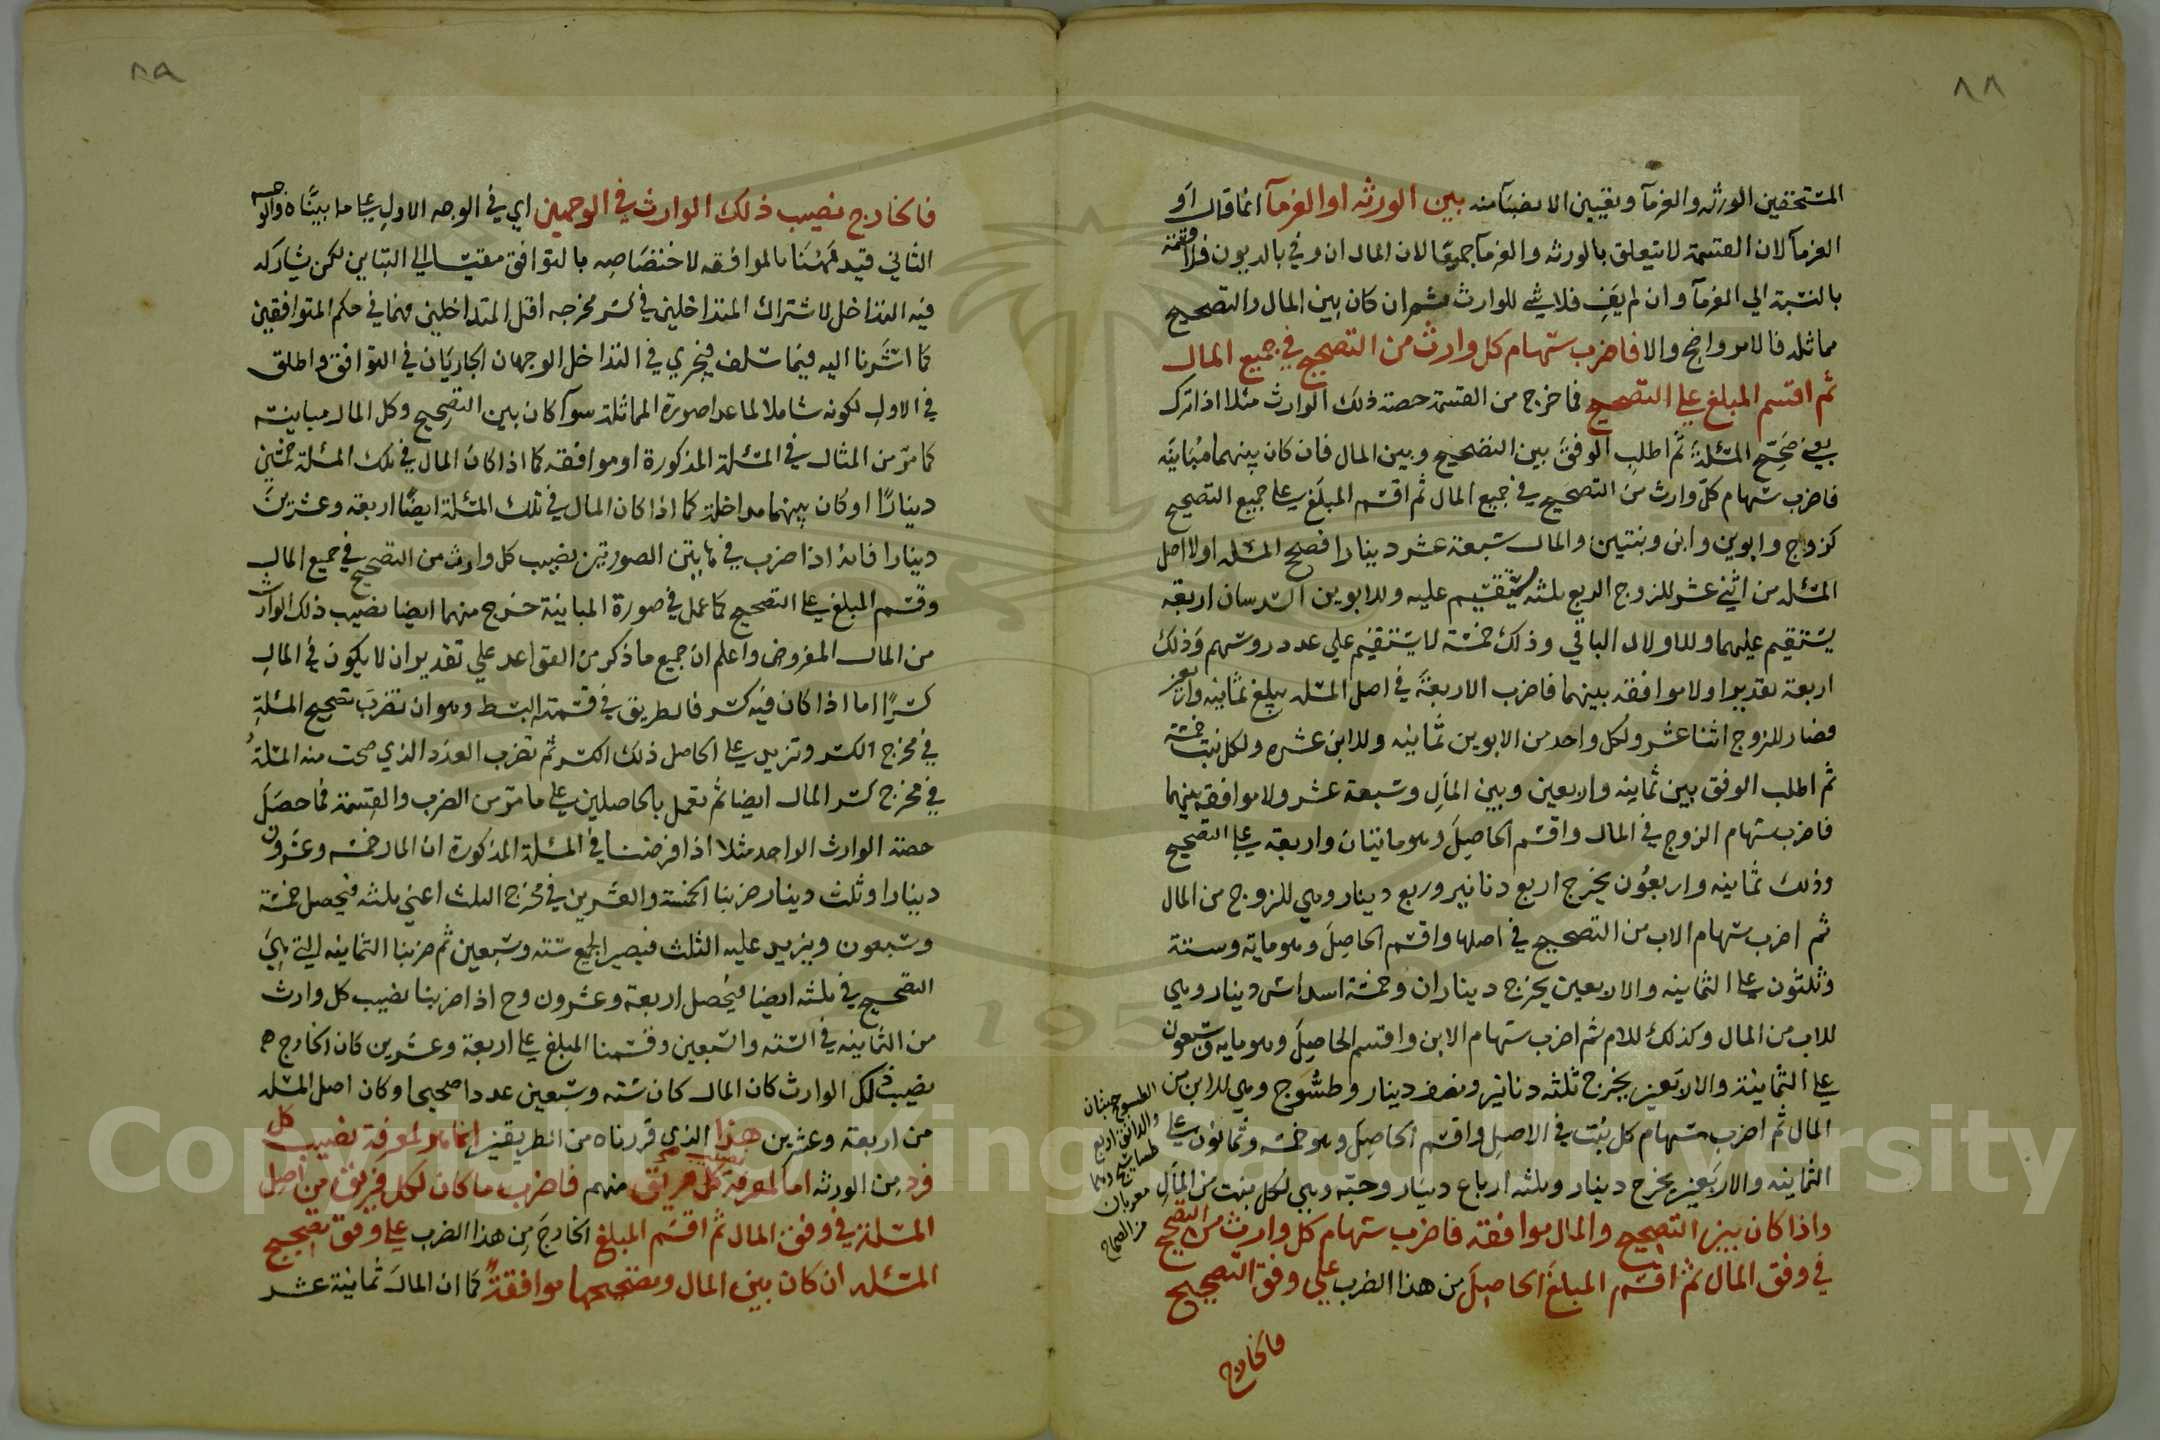 ٨٨
المستحقين الورثه والغرمآ وتعيين الانصبآ منه بين الورثه او الغرمآ انما قال او
الغرمآ لان القسمة لا تتعلق بالورثه والغرمآ جميعا لان المال ان وفي بالديون فلا قسمة
بالنسبة الي الغرمآ وان لم يف فلا شي للوارث ثم ان كان بين المال والتصحيح
مماثلة فالامر واضح والا فاضرب سهام كل وارث من التصحيح في جميع المال
ثم اقسم المبلغ علي التصحيح فما خرج من القسمة حصة ذلك الوارث مثلا اذا ترك
يعني صحح المسئلة ثم اطلب الوفق بين التصحيح وبين المال فان كان بينهما مباينة
فاضرب سهام كل وارث من التصحيح في جميع المال ثم اقسم المبلغ علي جميع التصحيح
كزوج وابوين وابن وبنتين والمال سبعة عشر دينارا فصحح المسئله اولا اصل
المسئله من اثني عشر للزوج الربع ثلثه يستقيم عليه وللابوين السدسان اربعه
يستقيم عليهما وللاولاد الباقي وذلك خمسة لا يستقيم علي عدد روسهم وذلك
اربعة تقديرا ولا موافقه بينهما فاضرب الاربعة في اصل المسئله يبلغ ثمانيه واربعين
فصار للزوج اثنا عشر ولكل واحد من الابوين ثمانيه وللابن عشره ولكل بنت خمسة
ثم اطلب الوفق بين ثمانيه واربعين وبين المال وسبعة عشر ولا موافقه بينهما
فاضرب سهام الزوج في المال واقسم الحاصل وهو مايتان واربعة علي التصحيح
وذلك ثمانيه واربعون يخرج اربع دنانير وربع دينار وهي للزوج من المال
ثم اضرب سهام الاب من التصحيح في اصلها واقسم الحاصل وهو مايه وستة
وثلثون علي الثمانيه والاربعين يخرج ديناران وخمسة اسداس دينار وهي
للاب من المال وكذلك للام ثم اضرب سهام الابن واقسم الحاصل وهو مايه وسبعون
علي الثمانية والاربعين يخرج ثلثه دنانير ونصف دينار وطسوج وهي للابن من
المال ثم اضرب سهام كل بنت في الاصل واقسم الحاصل وهو خمسه وثمانون علي
الثمانيه والاربعين يخرج دينار وثلثه ارباع دينار وحبه وهي لكل بنت من المال
واذا كان بين التصحيح والمال موافقه فاضرب سهام كل وارث من التصحيح
في وفق المال ثم اقسم المبلغ الحاصل من هذا الضرب علي وفق التصحيح
فالخارج
الطسوج حبتان
والدانق اربع
طساسيج وهما
معربان
من الصحاح
٨٩
فالخارج نصيب ذلك الوارث في الوجهين اي في الوجه الاول علي ما بيناه والوجه
الثاني قيد ههنا بالموافقه لاختصاصه بالتوافق مقيسا الي التباين لكن يشاركه
فيه التداخل لاشتراك المتداخلين في كسر مخرجه اقل المتداخلين فهما في حكم المتوافقين
كما اشرنا اليه فيما سلف فيجري في التداخل الوجهان الجاريان في التوافق واطلق
في الاول لكونه شاملا لما عدا صورة المماثلة سوآ كان بين التصحيح وكل المال مباينة
كما مر من المثال في المسئلة المذكورة او موافقه كما اذا كان المال في تلك المسئلة خمسين
دينارا او كان بينهما مداخلة كما اذا كان المال في تلك المسئلة ايضا اربعة وعشرين
دينارا فانه اذا ضرب في هاتين الصورتين نصيب كل وارث من التصحيح في جميع المال
وقسم المبلغ علي التصحيح كما عمل في صورة المباينة خرج منهما ايضا نصيب ذلك الوارث
من المال المفروض واعلم ان جميع ما ذكر من القواعد علي تقدير ان لا يكون في المال
كسرا اما اذا كان فيه كسر فالطريق في قسمته البسط وهو ان تضرب تصحيح المسئلة
في مخرج الكسر وتزيد علي الحاصل ذلك الكسر ثم تضرب العدد الذي صحت منه المسئلة
في مخرج كسر المال ايضا ثم تعمل بالحاصلين علي ما مر من الضرب والقسمة فما حصل
حصة الوارث الواحد مثلا اذا فرضنا في المسئلة المذكورة ان المال خمسه وعشرون
دينارا وثلث دينار ضربنا الخمسة والعشرين في مخرج الثلث اعني ثلثه فيحصل خمسة
وسبعون ويزيد عليه الثلث فيصير الجميع ستة وسبعين ثم ضربنا الثمانيه التي هي
التصحيح في ثلثه ايضا فيحصل اربعة وعشرون وح اذا ضربنا نصيب كل وارث
من الثمانيه في الستة والسبعين وقسمنا المبلغ علي اربعة وعشرين كان الخارج ه
نصيب ذلك الوارث كان المال كان ستة وسبعين عددا صحيحا وكان اصل المسئله
من اربعة وعشرين هذا الذي قررناه من الطريقين انما هو لمعرفة نصيب كل
فرد من الورثه اما لمعرفة نصيب كل فريق منهم فاضرب ما كان لكل فريق من اصل
المسئلة في وفق المال ثم اقسم المبلغ الخارج من هذا الضرب علي وفق تصحيح
المسئله ان كان بين المال وتصحيحها موافقة كما ان المال ثمانية عشر
Copyright © King Saud University
1957